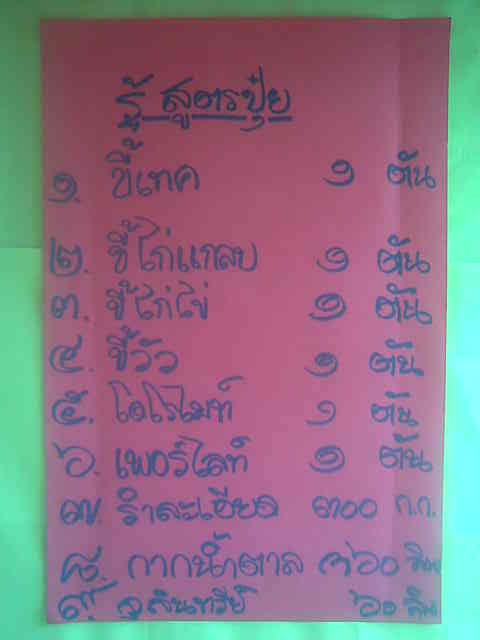 รู้ สูตรปุ๋ย
๑. ขี้เทค ๑ ตัน
๒. ขี้ไก่แกลบ ๑ ตัน
๓. ขี้ไก่ไข่ ๑ ตัน
๔. ขี้วัว ๑ ตัน
๕. โดโรไมท์ ๑ ตัน
๖. เพอร์ไลท์ ๑ ตัน
๗. รำละเอียด ๓๐๐ ก.ก.
๘. กากน้ำตาล ๓๖๐
๙. จุลินทรีย์ ๖๐